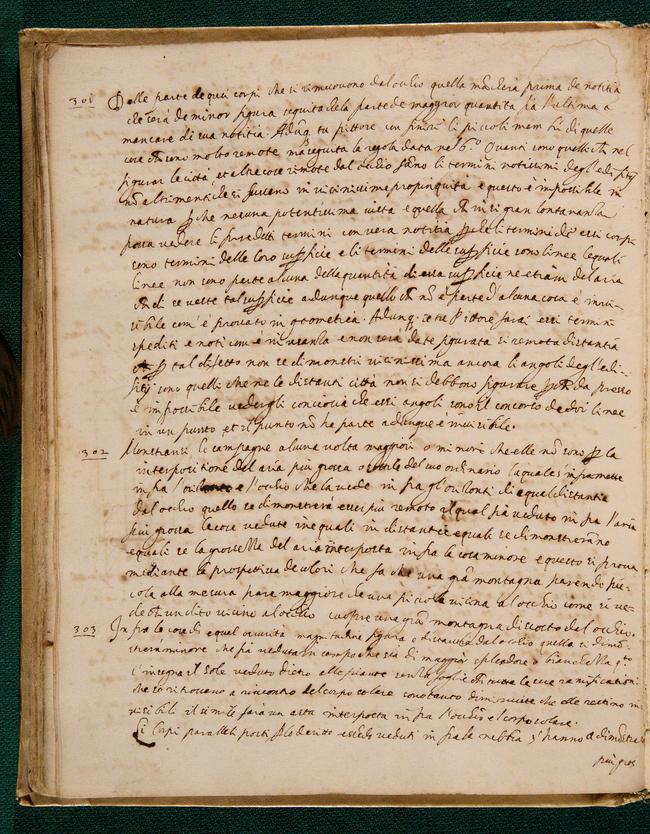 301 Delle parte de quei corpi che si rimuovono dal ochio quella mancherà prima de notitia
che serà de minor figura seguita ch la parte de maggior quantità sia l'ultima a
mancare di sua notitia. Adunq tu pittore non finire li piccioli membri di quelle
cose ch sono molto remote ma seguita la regola data nel 6.º Quanti sono quelli ch nel
figurar le città et altre cose remote dal ochio fanno li termini notissimi degl'edifitij
nō altrimenti che si fussero in vicinissima propinquità e questo è impossibile in
natura p che nesuna potentissima vista e quella ch in si gran lontananza
possa vedere li predetti termini con vera notitia p che li termini de essi corpi
sono termini delle loro supficie e li termini delle supficie sono linee le quali
linee non sono parte alcuna della quantità di essa supficie ne etiam de l'aria
ch di se veste tal supficie adunque quello ch nō è parte d'alcuna cosa è invi-
sibile com'è provato in geometria. Adunq se tu Pittore farai essi termini
spediti e noti com'è in usanza e non serà da te figurata si remota distantia
ch p tal difetto non se dimostri vicinissima ancora li angoli degl'edi-
fitij sono quelli che ne le distanti città non si debbono figurare p ch da presso
è impossibile vedergli conciosia che essi angoli sono il concorso de doi linee
in un punto et il punto nō ha parte adunque è invisibile.
302 Monstransi le campagne alcuna volta maggiori o minori che elle nō sono p la
interpositione del aria più grossa o sottile del suo ordinario la quale s'inframette
in fra l'orizonte e l'ochio che la vede in fra gl'orizonti di equal distantia
dal ochio quello se dimostrerà esser più remoto il qual fia veduto in fra l'aria
più grossa le cose vedute inequali in distantie equali se dimostreranno
equali se la grossezza del aria interposta in fra la cosa minore e questo si prova
mediante la prospettiva de colori che fa che una grā montagna parendo pic-
cola alla mesura pare maggiore de una picciola vicina al ochio come si ve-
de ch'un dito vicino al ochio cuopre una grā montagna discosto dal ochio.
303 In fra le cose di equal oscurità magnitudine figura e distantia dal ochio quella si dimō-
strerà minore che fia veduta in campo che sia di maggior splendore o bianchezza q.to
c'insegna il sole veduto dietro alle piante senza foglie ch tutte le sue ramificationi
che se ritrovano a rincontro del corpo solare sono tanto diminuite che elle restino in-
visibili il simile farà un asta interposta in fra l'ochio e 'l corpo solare.
Li corpi paralleli posti p lo diritto essendo veduti in fra la nebbia s'hanno a dimostrar
più gros